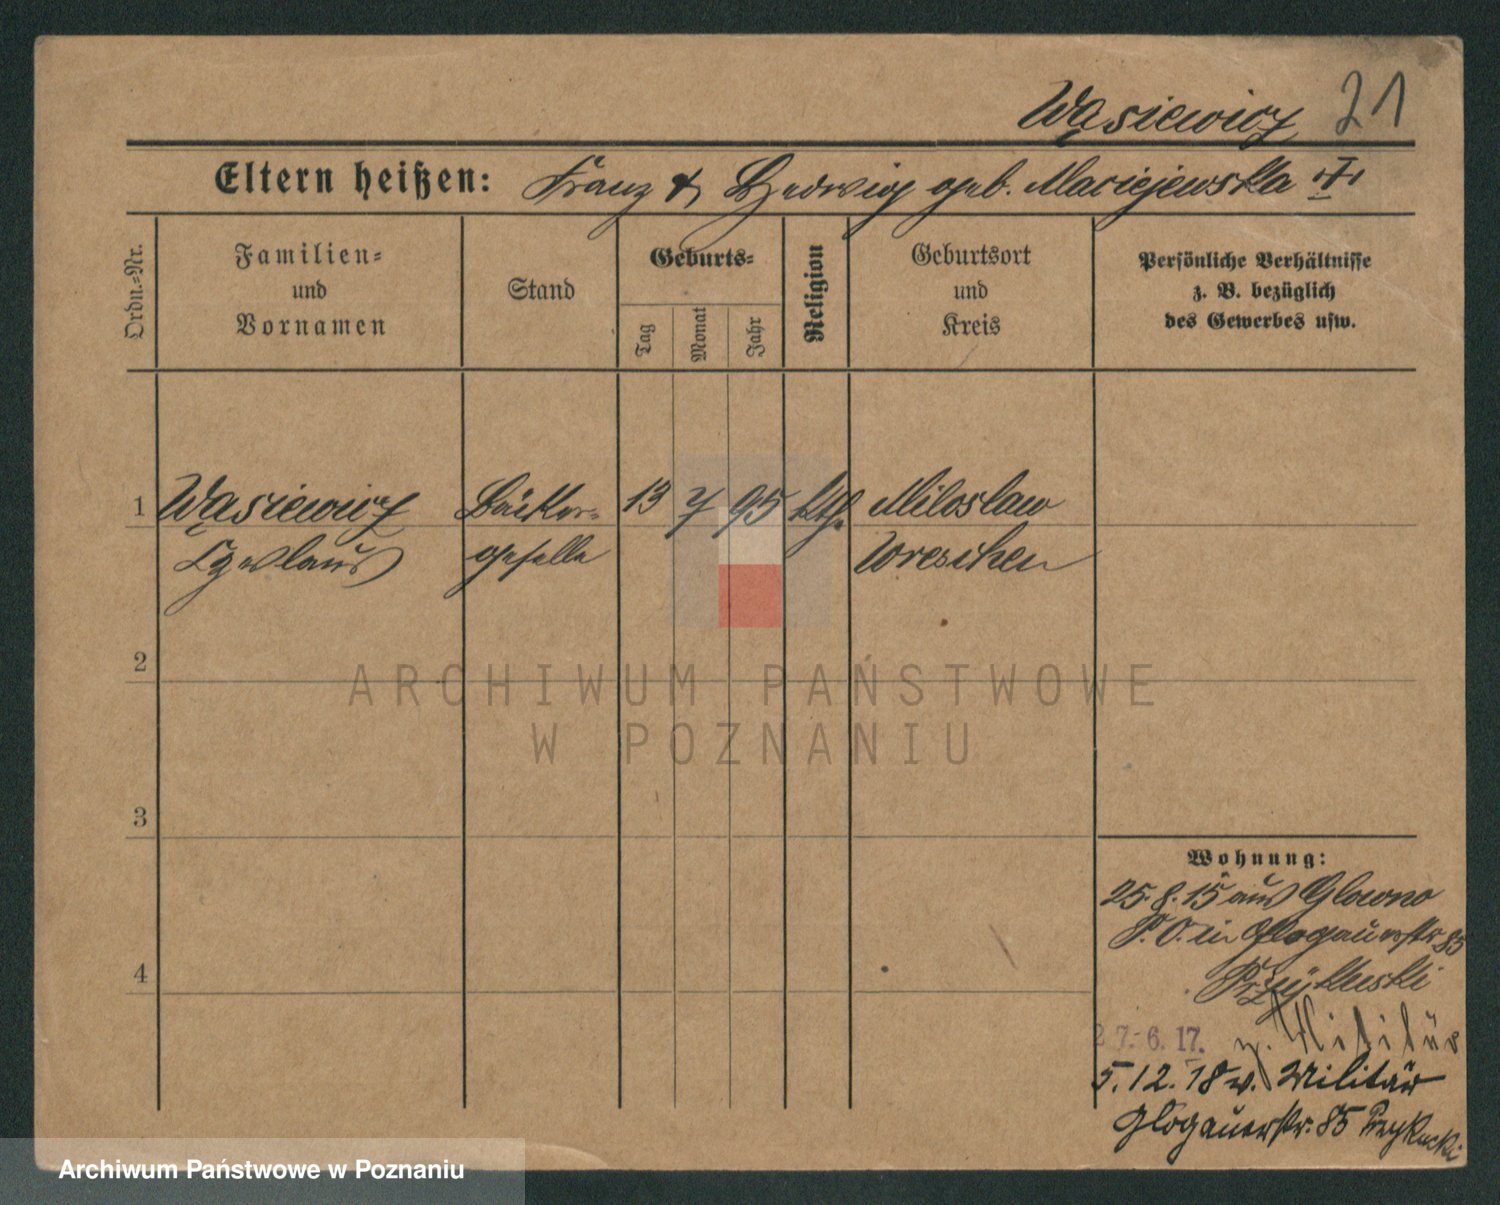 Wąsiewicz 21
Eltern heißen: Franz & Hedwig geb. Maciejewska
Ordn.-Nr.
Familien-
und
Vornamen
Stand
Geburts-
Tag
Monat
Jahr
Religion
Geburtsort
und
Kreis
Persönliche Verhältnisse
z. B. bezüglich
des Gewerbes usw.
1 Wąsiewicz Bäcker- 13 7 95 kth. Miloslaw
Czeslaus geselle Wreschen
2
ARCHIWUM PAŃSTWOWE
W POZNANIU
3
Wohnung:
25.8.15 aus Glowno
P. O. in Glogauerstr. 85
4
27.6.17. z. Militär
5.12.18 v. Militär
Glogauerstr. 85
Archiwum Państwowe w Poznaniu